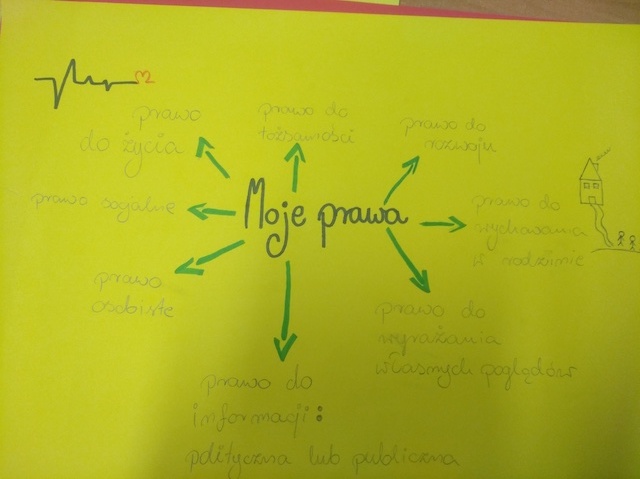 prawo
do życia
prawo do
tożsamości
prawo do
rozwoju
prawa socjalne
Moje prawa
prawo do
wychowania
w rodzinie
prawa
osobiste
prawo do
wyrażania
własnych poglądów
prawo do
informacji:
polityczna lub publiczna